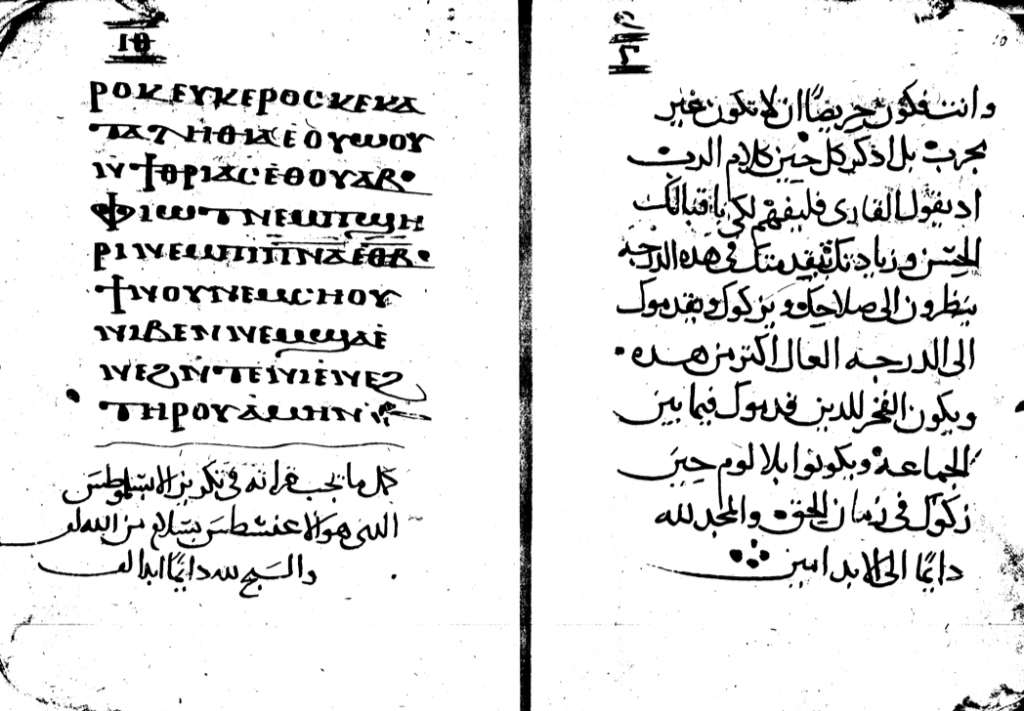 ⲓⲑ
ⲣⲟⲕⲉⲩⲕⲉⲣⲟⲥⲕⲉⲕⲁ
ⲧⲁⲇⲏⲑⲓⲁⲉⲟⲩⲱⲟⲩ
ⲛϯⲑⲣⲓⲁⲥⲉⲑⲟⲩⲁⲃ
ⲫⲓⲱⲧⲛⲉⲙⲡϣⲏ
ⲣⲓⲛⲉⲙⲡⲓⲡⲛⲁⲉⲑⲃ
ϯⲛⲟⲩⲛⲉⲙⲥⲏⲟⲩ
ⲛⲓⲃⲉⲛⲛⲉⲙϣⲁⲉ
ⲛⲉϩⲛⲧⲉⲛⲓⲉⲛⲉϩ
ⲧⲏⲣⲟⲩⲁⲙⲏⲛ
كل ما يجب قراته في تكريز الابسلطس
الدى هو الاغنسطس بسلام من الله له
والسبح لله دايمًا ابدا
وانت فكون حريصًا ان لا تكون غير
مجرب بل اذكر كل حين كلام الرب
اد يقول القارى فليفهم لكى
وزيادتك في هذه الدرجه
ينظرون الى صلاحك ويزكوك ويقدموك
الى الدرجه العال اكتر من هده
ويكون الفخر للدين قدموك فيما بين
الجماعه ويكونوا بلا لوم حين
زكوك في زمان للحق والمجد لله
دايمًا الى الابد امين